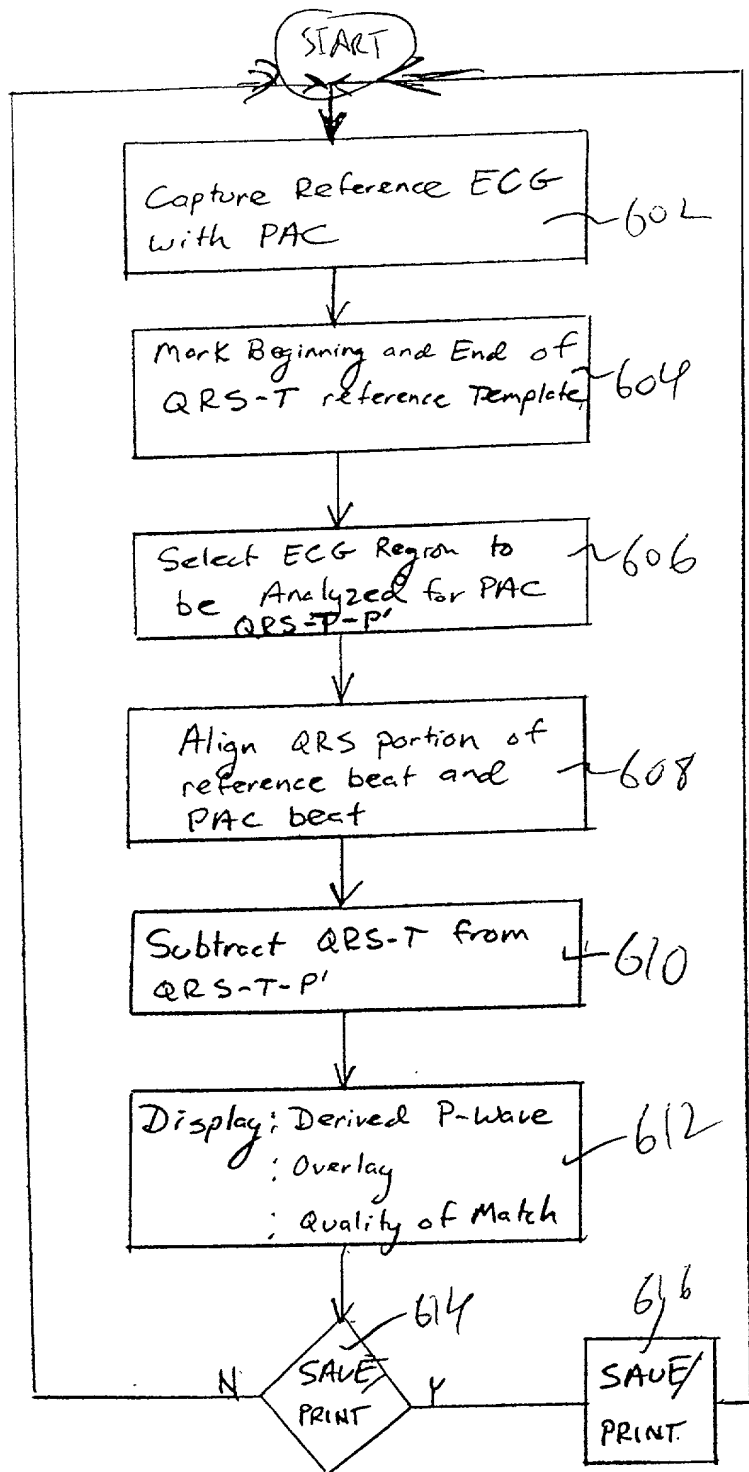 START
Capture Reference ECG
with PAC
602
Mark Beginning and End of
QRS-T reference Template
604
Select ECG Region to
be Analyzed for PAC
QRS-T-P'
606
Align QRS portion of
reference beat and
PAC beat
608
Subtract QRS-T from
QRS-T-P'
610
Display: Derived P-Wave
: Overlay
: Quality of Match
612
614
SAVE/
PRINT
N
Y
616
SAVE/
PRINT.